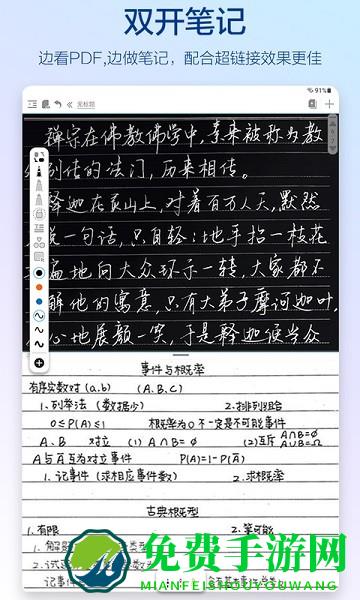 双开笔记
边看PDF,边做笔记，配合超链接效果更佳
91%
无标题
禅宗在佛教佛学中,素来被称为教
别传的法门,历来相传。
释迦在灵山上,对着百万人天,默然
说一句话,只自轻:地手拈一枝花
遍地向大众环示一转,大家都不
解他的寓意,只有大弟子摩诃迦叶,
心地展颜一笑,于是释迦便当众
事件与概率
有序实数对(a,b) (A,B,C)
1.列举法(数据少) 2.排列组合
0≤P(A)≤1 概率为0不一定是不可能事件
A、B 对立 (1) A∩B=∅ (2)互斥 A∩B=∅ A∪B=Ω
A与Ā互为对立事件 P(A)=1-P(Ā)
1.记事件(求相应事件数) 2.求概率
古典概型
1.有限 2.等可能
1.解题
2.试
记事件
免费手游网
MIANFEISHOUYOUWANG